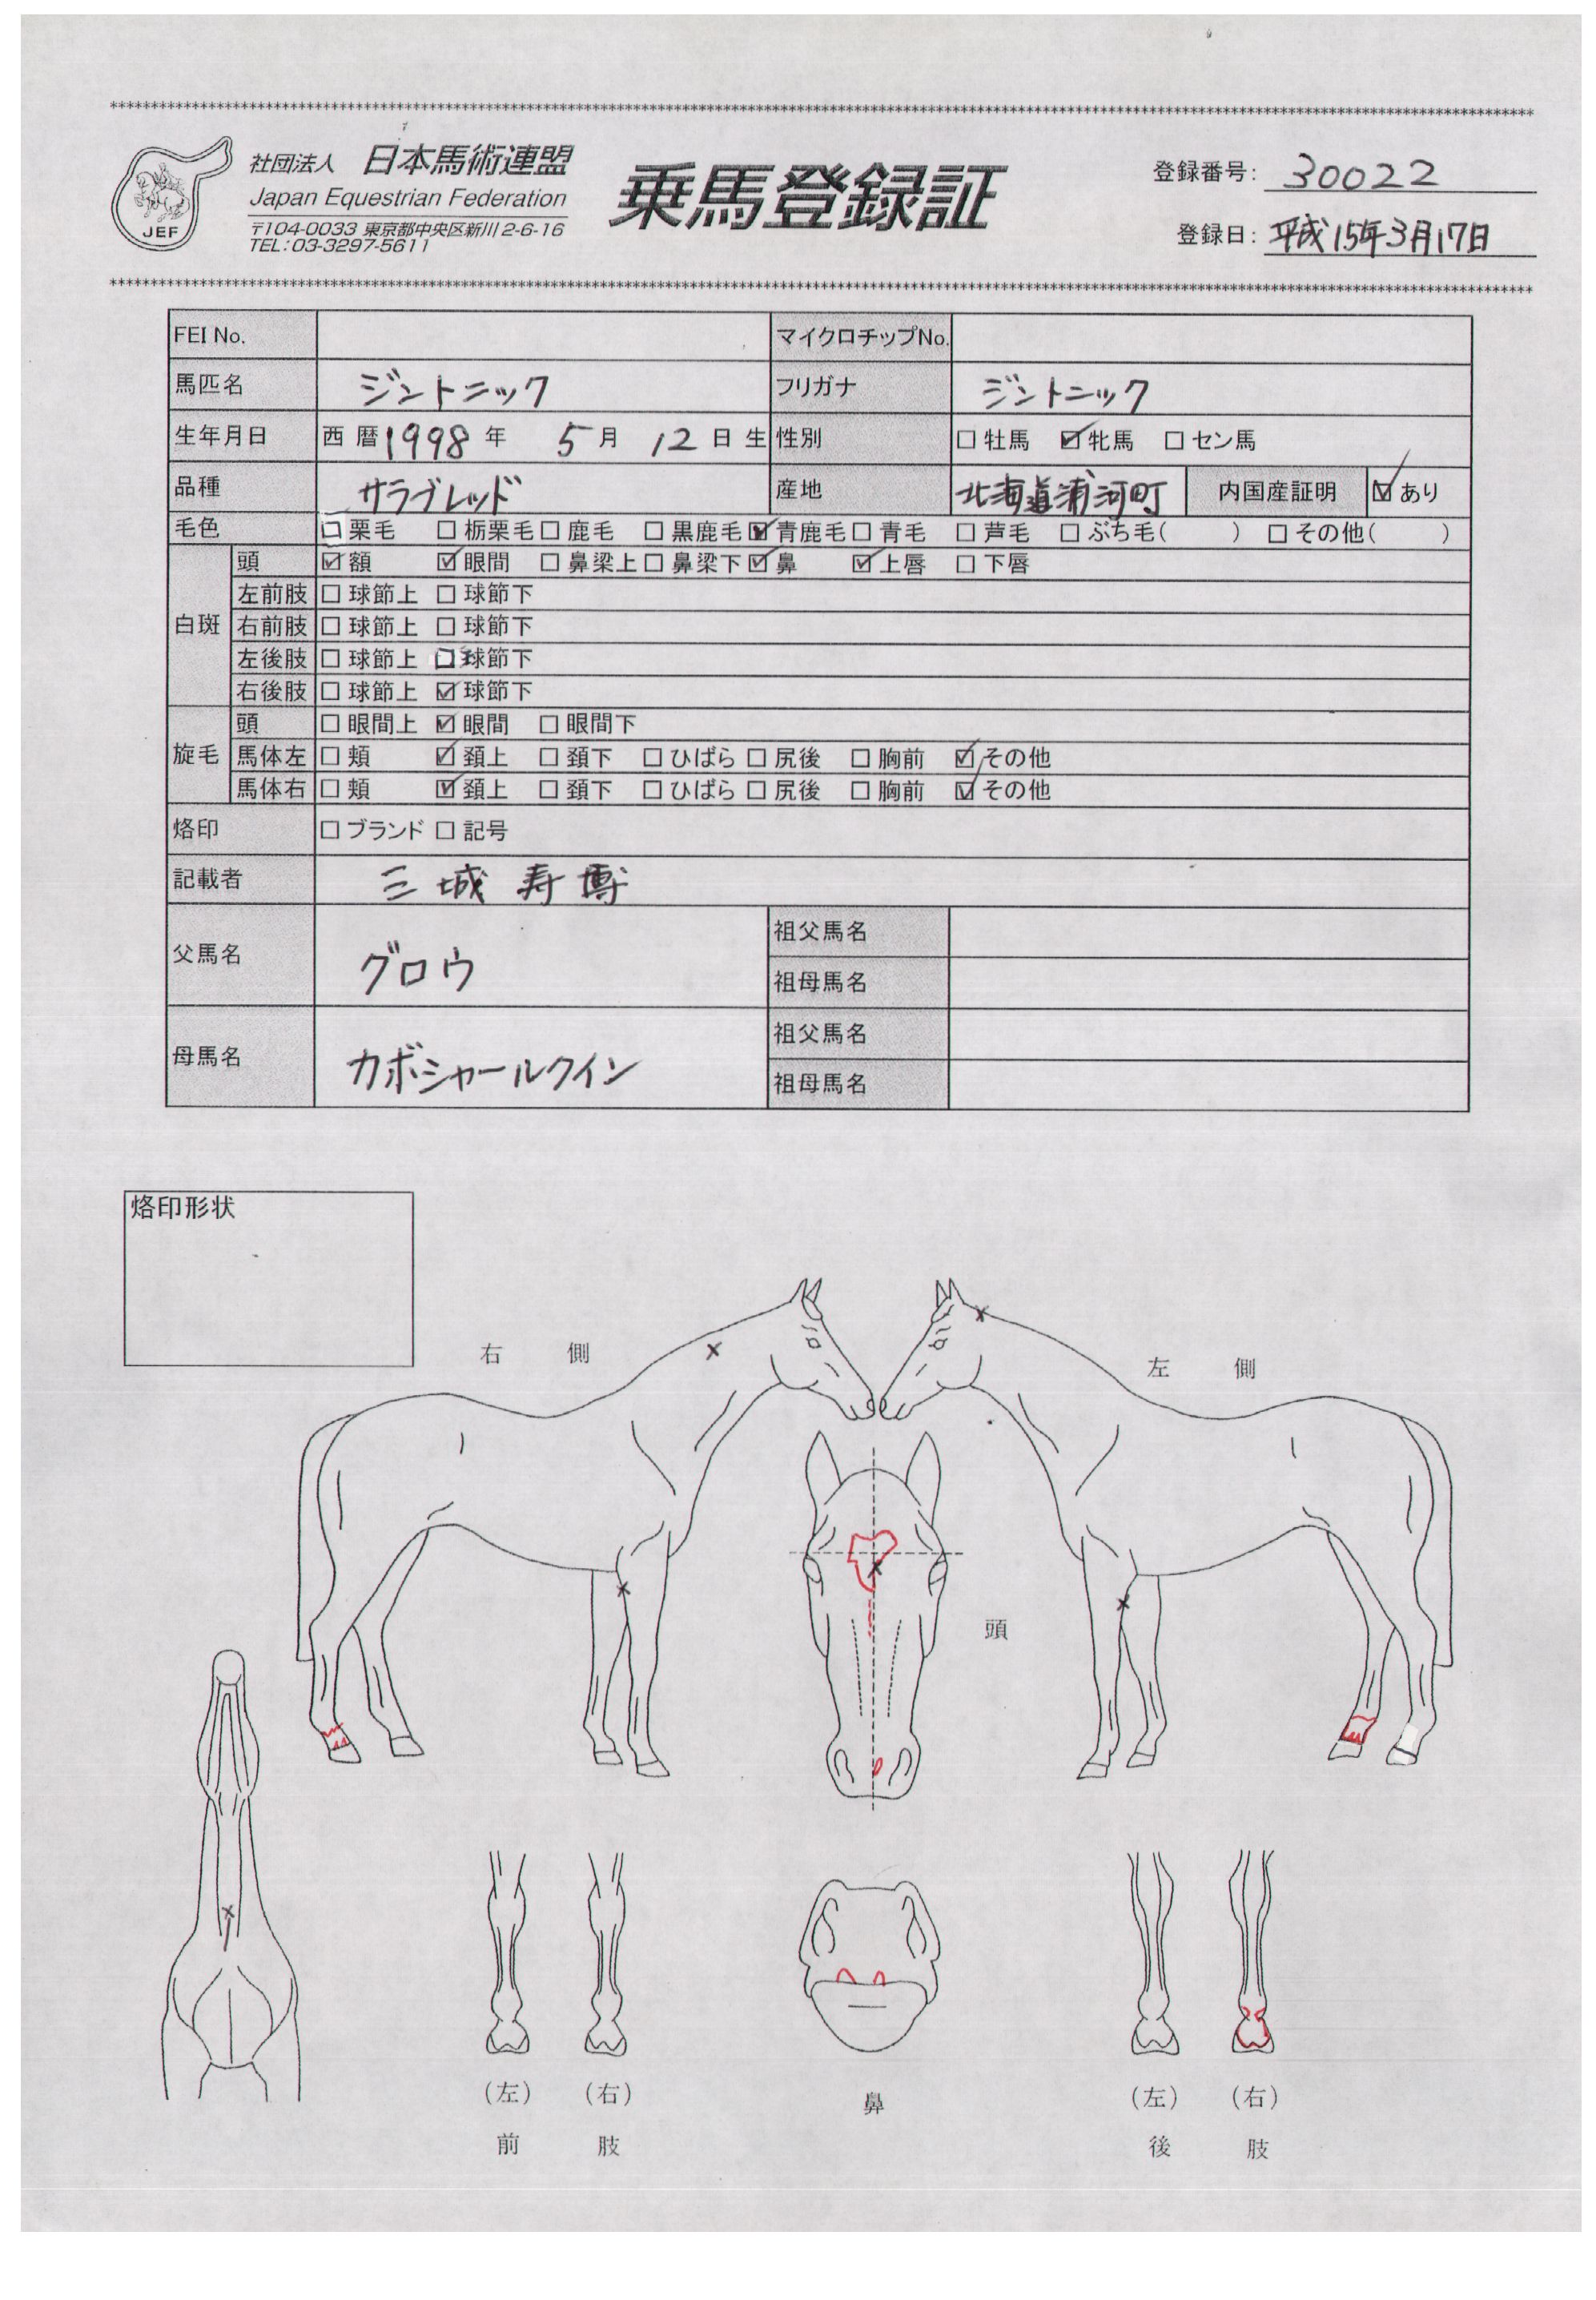 ****************************************
社団法人 日本馬術連盟
Japan Equestrian Federation
〒104-0033 東京都中央区新川2-6-16
TEL:03-3297-5611
JEF
乗馬登録証
登録番号: 30022
登録日: 平成15年3月17日
****************************************
FEI No. マイクロチップNo.
馬匹名 ジントニック フリガナ ジントニック
生年月日 西暦1998年 5月 12日生 性別 □牡馬 ☑牝馬 □セン馬
品種 サラブレッド 産地 北海道浦河町 内国産証明 ☑あり
毛色 □栗毛 □栃栗毛 □鹿毛 □黒鹿毛 ☑青鹿毛 □青毛 □芦毛 □ぶち毛( ) □その他( )
白斑 頭 ☑額 ☑眼間 □鼻梁上 □鼻梁下 ☑鼻 ☑上唇 □下唇
左前肢 □球節上 □球節下
右前肢 □球節上 □球節下
左後肢 □球節上 □球節下
右後肢 □球節上 ☑球節下
旋毛 頭 □眼間上 ☑眼間 □眼間下
馬体左 □頬 ☑頚上 □頚下 □ひばら □尻後 □胸前 ☑その他
馬体右 □頬 ☑頚上 □頚下 □ひばら □尻後 □胸前 ☑その他
烙印 □ブランド □記号
記載者 三城 寿博
父馬名 グロウ 祖父馬名
祖母馬名
母馬名 カボシャールクイン 祖父馬名
祖母馬名
烙印形状
右側
左側
頭
(左) (右)
前肢
鼻
(左) (右)
後肢